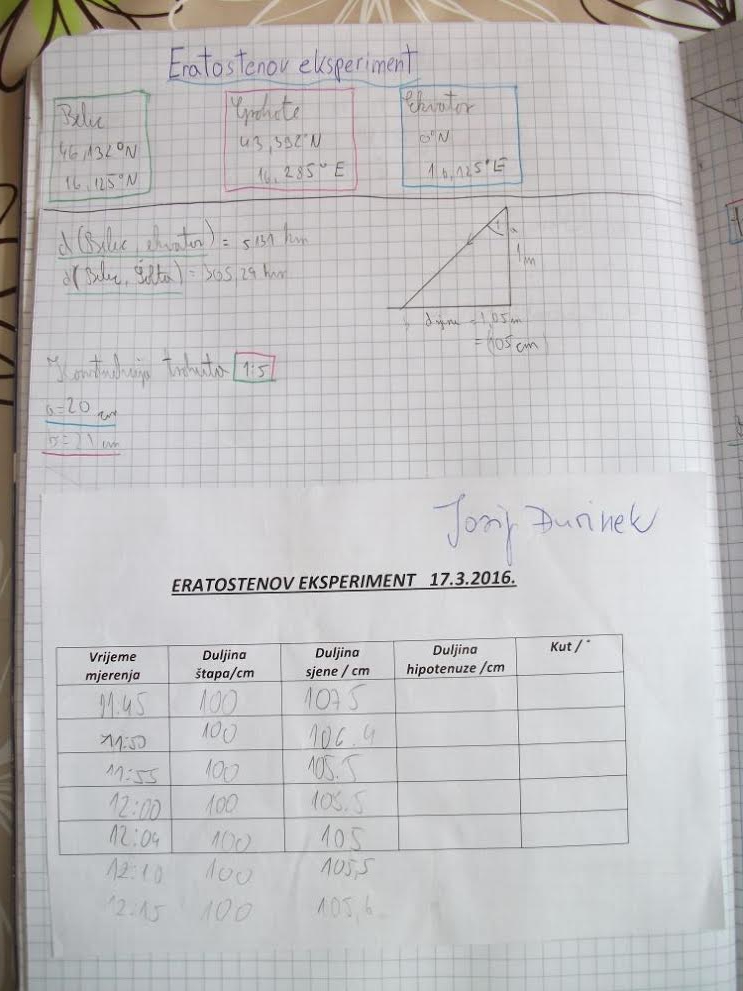 Eratostenov eksperiment
Belec
46,132°N
16,125°N
43,392°N
16,285°E
Ekvator
0°N
16,125°E
d(Belec, ekvator) = 5131 km
d(Belec, Šolta) = 305,29 km
1m
sjene = 1,05m
= (105 cm)
Konstrukcija trokuta 1:5
a=20 cm
b=21 cm
Josip Đurinek
ERATOSTENOV EKSPERIMENT 17.3.2016.
Vrijeme mjerenja Duljina štapa/cm Duljina sjene / cm Duljina hipotenuze /cm Kut / °
11:45 100 107.5
11:50 100 106.4
11:55 100 105.5
12:00 100 105.5
12:04 100 105
12:10 100 105,5
12:15 100 105,6